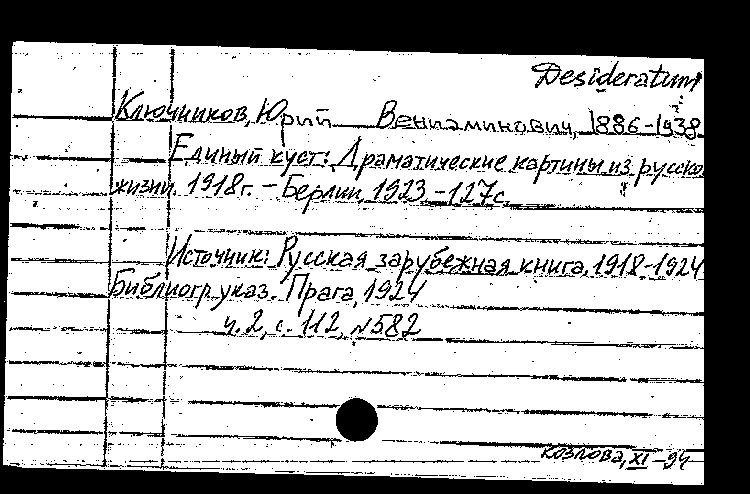 Desideratum
Ключников, Юрий Вениаминович, 1886-1938
Единый куст: Драматические картины из русско
жизни 1918г. - Берлин, 1923 - 127с.
Источник: Русская зарубежная книга, 1918-1924
Библиогр. указ. Прага, 1924
ч. 2, с. 112, №582
Козлова, XI-94